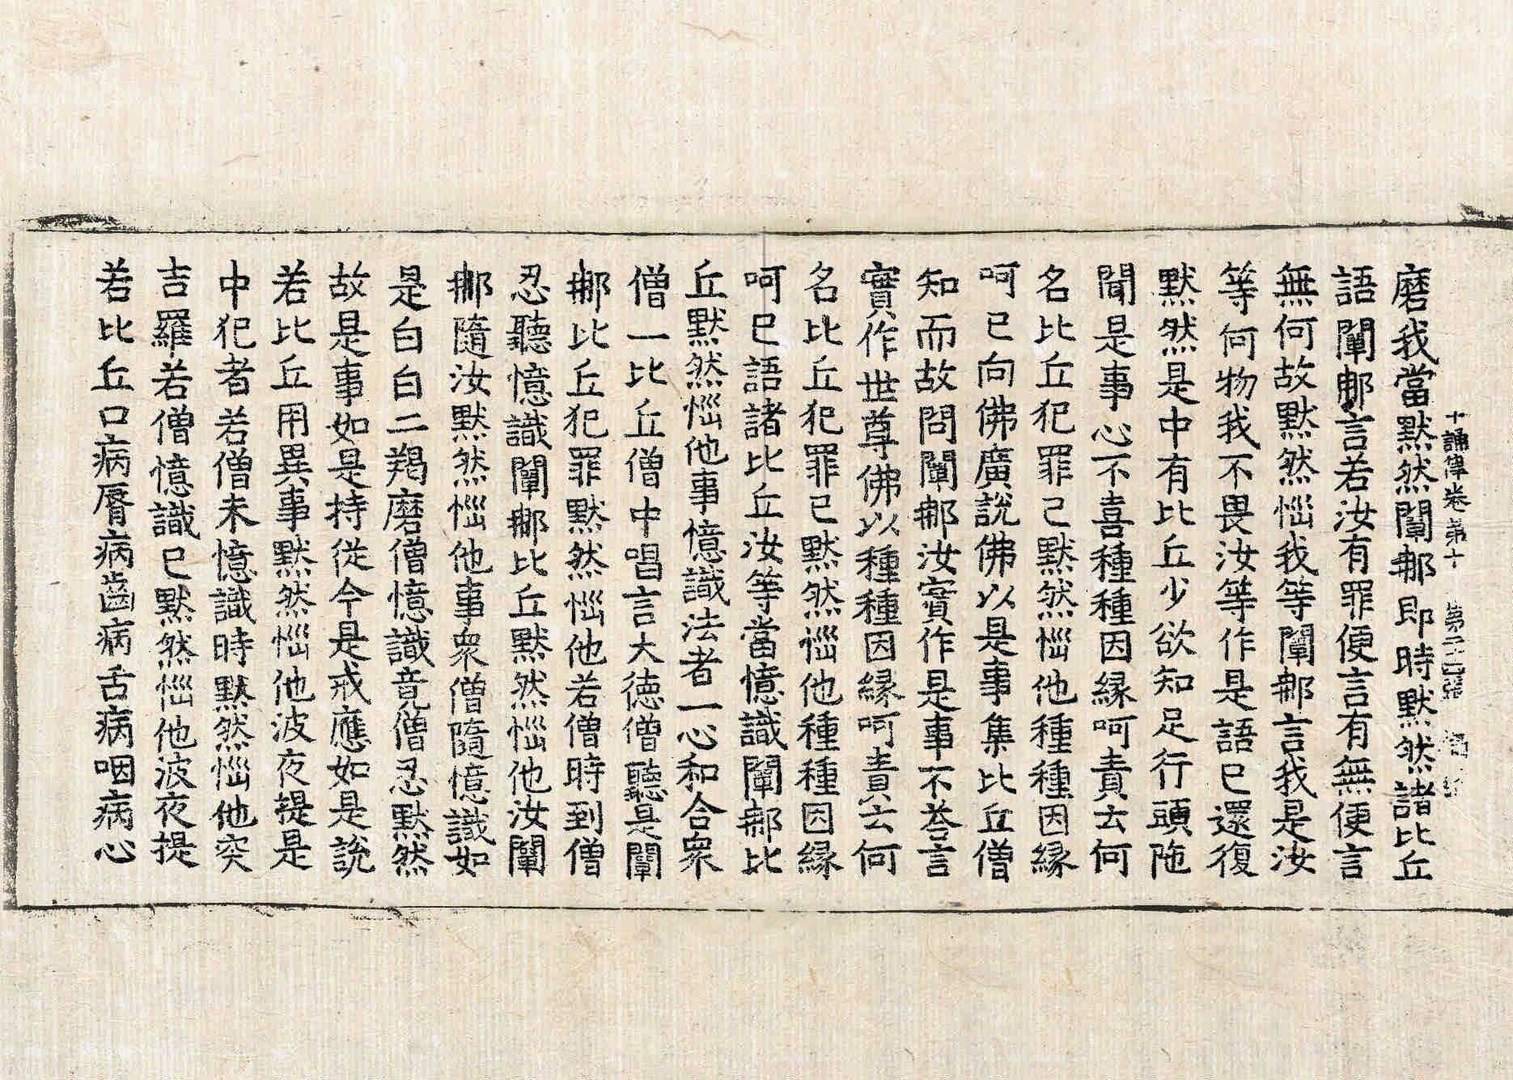 十誦律卷第十 第二十四張
磨我當默然闡那即時默然諸比丘
語闡那言若汝有罪便言有無便言
無何故默然惱我等闡那言我是汝
等何物我不畏汝等作是語已還復
默然是中有比丘少欲知足行頭陁
聞是事心不喜種種因緣呵責云何
名比丘犯罪已默然惱他種種因緣
呵已向佛廣說佛以是事集比丘僧
知而故問闡那汝實作是事不荅言
實作世尊佛以種種因緣呵責云何
名比丘犯罪已默然惱他種種因緣
呵已語諸比丘汝等當憶識闡那比
丘默然惱他事憶識法者一心和合衆
僧一比丘僧中唱言大德僧聽是闡
那比丘犯罪默然惱他若僧時到僧
忍聽憶識闡那比丘默然惱他汝闡
那隨汝默然惱他事衆僧隨憶識如
是白白二羯磨僧憶識竟僧忍默然
故是事如是持從今是戒應如是說
若比丘用異事默然惱他波夜提是
中犯者若僧未憶識時默然惱他突
吉羅若僧憶識已默然惱他波夜提
若比丘口病脣病齒病舌病咽病心